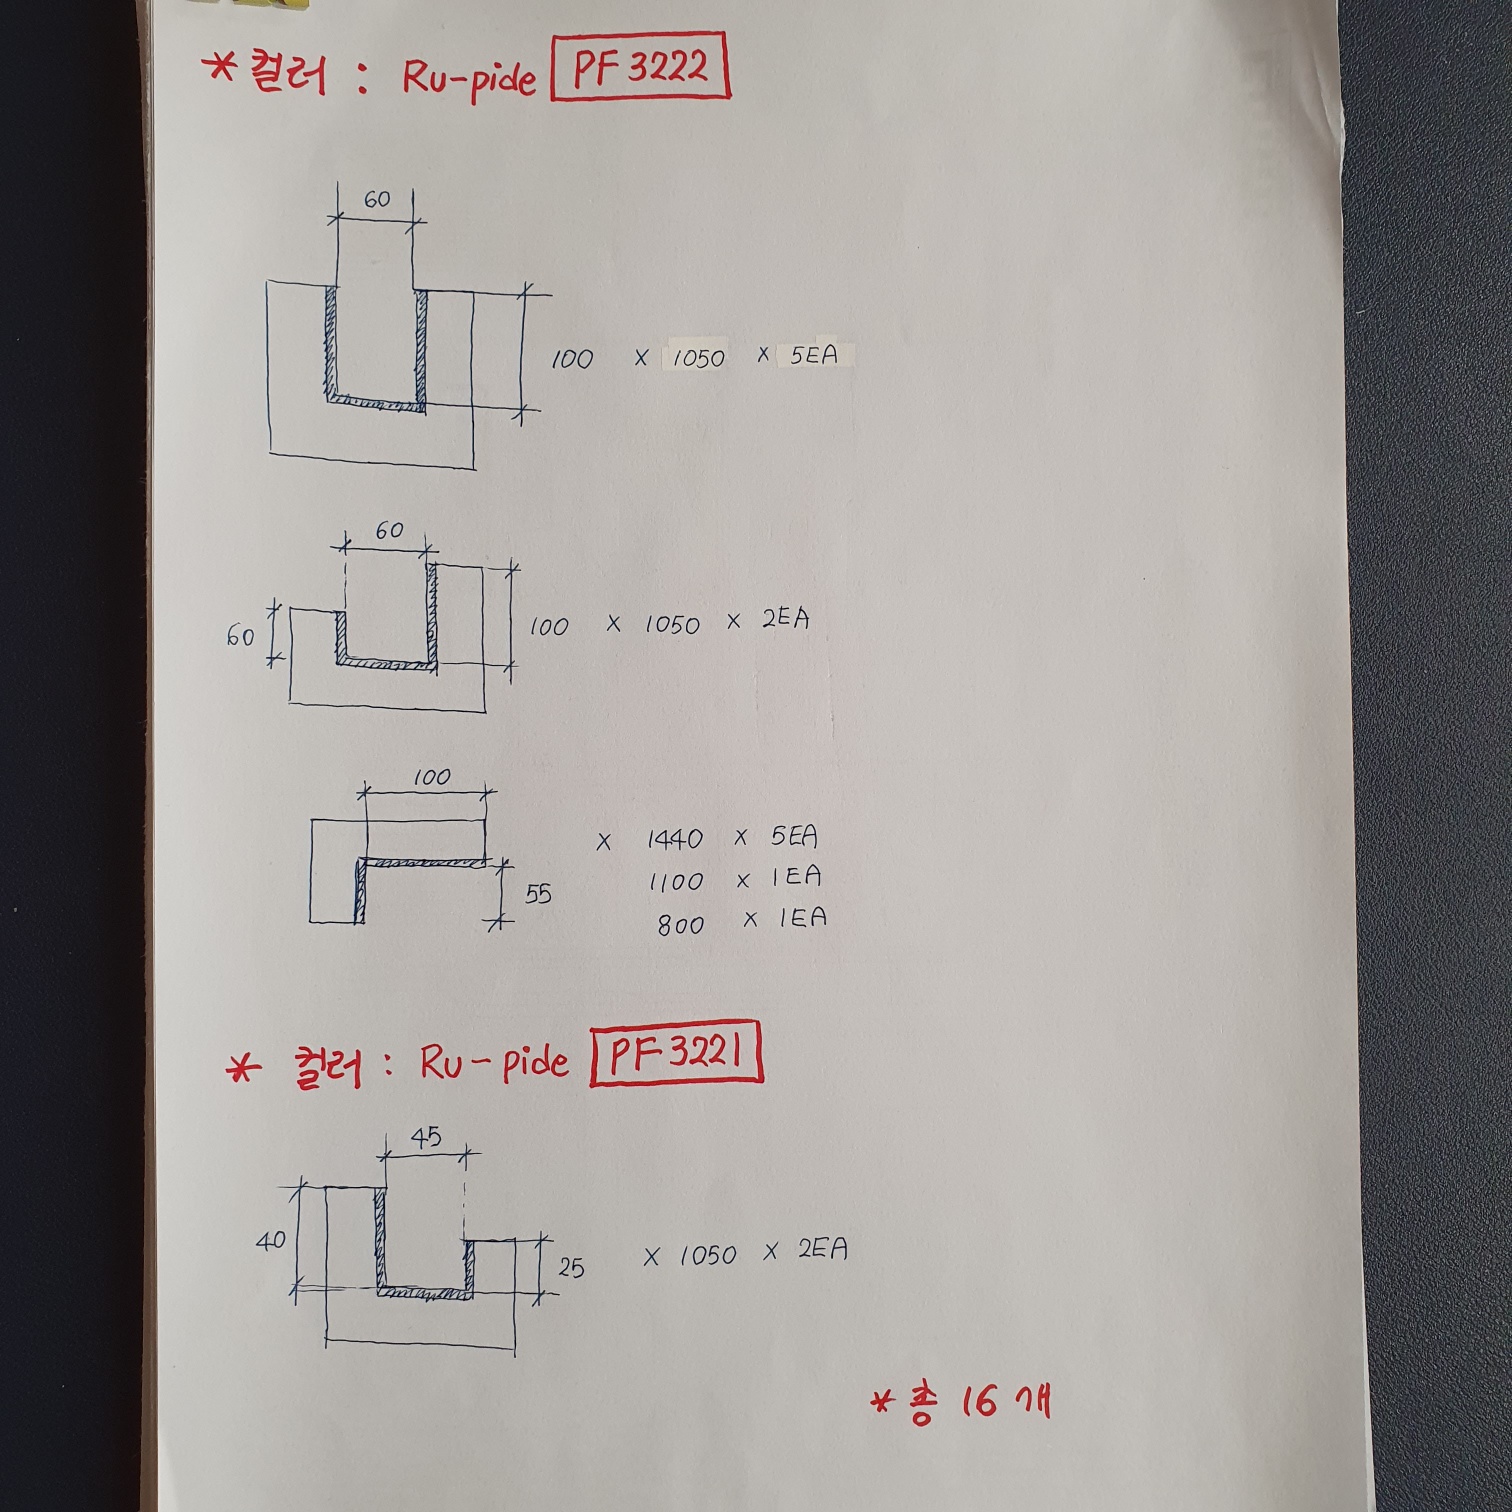 * 컬러 : Ru-pide PF 3222
60
100 x 1050 x 5EA
60
60
100 x 1050 x 2EA
100
x 1440 x 5EA
1100 x 1EA
55
800 x 1EA
* 컬러 : Ru-pide PF 3221
45
40
25
x 1050 x 2EA
* 총 16 개